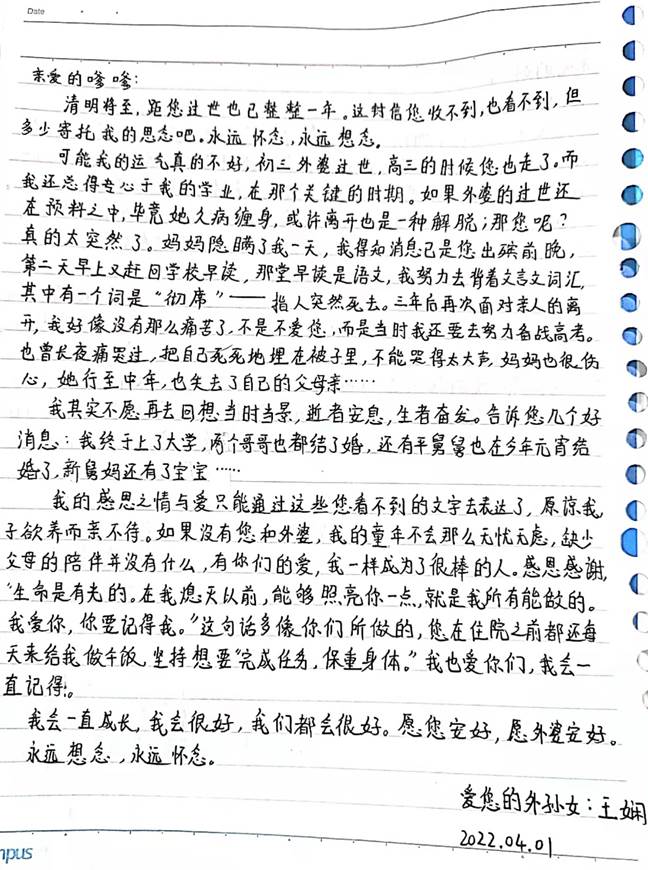 Date
亲爱的嗲嗲：
清明将至，距您过世也已整整一年。这封信您收不到，也看不到，但
多少寄托我的思念吧。永远怀念，永远想念。
可能我的运气真的不好，初三外婆过世，高三的时候您也走了。而
我还总得专心于我的学业，在那个关键的时期。如果外婆的过世还
在预料之中，毕竟她久病缠身，或许离开也是一种解脱；那您呢？
真的太突然了。妈妈隐瞒了我一天，我得知消息已是您出殡前晚，
第二天早上又赶回学校早读，那堂早读是语文，我努力去背着文言文词汇，
其中有一个词是“彻席”——指人突然死去。三年后再次面对亲人的离
开，我好像没有那么痛苦了，不是不爱您，而是当时我还要去努力备战高考。
也曾长夜痛哭过，把自己死死地埋在被子里，不能哭得太大声，妈妈也很伤
心，她行至中年，也失去了自己的父母亲……
我其实不愿再去回想当时当景，逝者安息，生者奋发。告诉您几个好
消息：我终于上了大学，两个哥哥也都结了婚，还有平舅舅也在今年元宵结
婚了，新舅妈还有了宝宝……
我的感恩之情与爱只能通过这些您看不到的文字去表达了，原谅我，
子欲养而亲不待。如果没有您和外婆，我的童年不会那么无忧无虑，缺少
父母的陪伴并没有什么，有你们的爱，我一样成为了很棒的人。感恩感谢，
“生命是有光的。在我熄灭以前，能够照亮你一点，就是我所有能做的。
我爱你，你要记得我。”这句话多像你们所做的，您在住院之前都还每
天来给我做午饭，坚持想要“完成任务，保重身体。”我也爱你们，我会一
直记得。
我会一直成长，我会很好，我们都会很好。愿您安好，愿外婆安好。
永远想念，永远怀念。
爱您的外孙女：王娴
2022.04.01
mpus